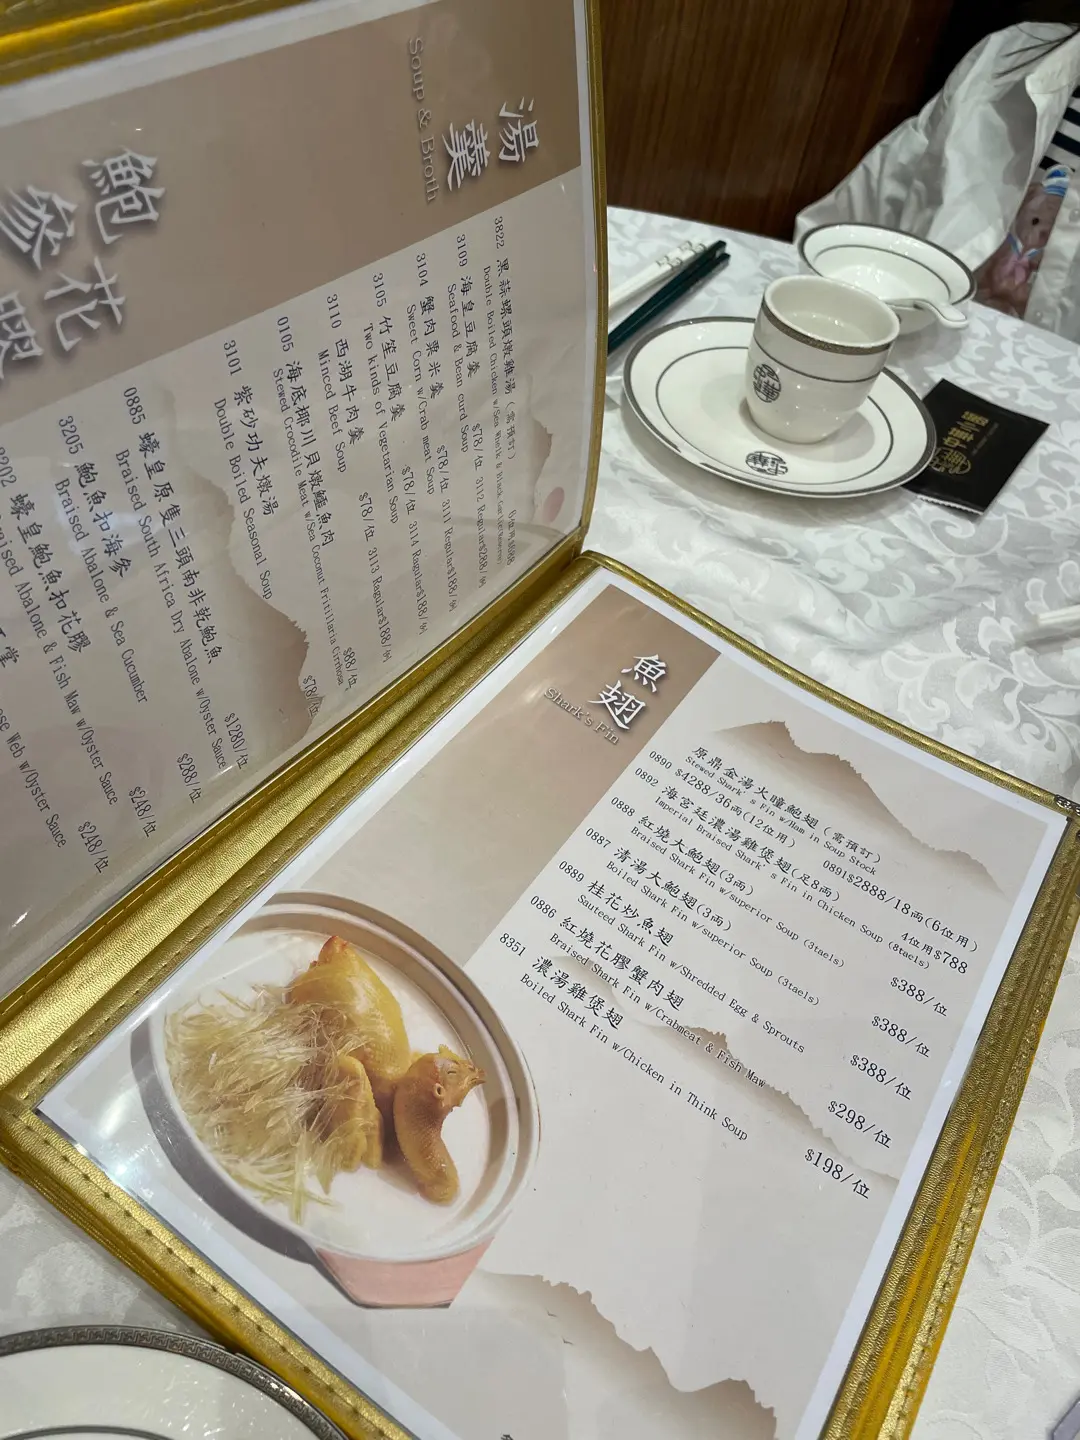 湯羹
Soup & Broth
3822 黑蒜螺頭燉雞湯（需預訂） 6位用$688
Double Boiled Chicken w/Sea Whelk & Black Garlic
3109 海皇豆腐羹 $78/位 3112 Regular$288/例
Seafood & Bean curd Soup
3104 蟹肉粟米羹 $78/位 3111 Regular$188/例
Sweet Corn w/Crab meat Soup
3105 竹笙豆腐羹 $78/位 3114 Ragular$188/例
Two kinds of Vegetarian Soup
3110 西湖牛肉羹 $78/位 3113 Ragular$188/例
Minced Beef Soup
0105 海底椰川貝燉鱷魚肉 $88/位
Stewed Crocodile Meat w/Sea Coconut Fritillaria Cirrhosae
3101 紫砂功夫燉湯 $78/位
Double Boiled Seasonal Soup
鮑參花膠
0885 蠔皇原隻三頭南非乾鮑魚 $1280/位
Braised South Africa Dry Abalone w/Oyster Sauce
3205 鮑魚扣海參 $288/位
Braised Abalone & Sea Cucumber
3202 蠔皇鮑魚扣花膠 $248/位
Braised Abalone & Fish Maw w/Oyster Sauce
$248/位
Web w/Oyster Sauce
魚翅
Shark's Fin
原鼎金湯火瞳鮑翅（需預訂）
Stewed Shark's Fin w/Ham in Soup Stock
0890 $4288/36両(12位用) 0891$2888/18両(6位用)
0892 海宮廷濃湯雞煲翅(足8両) 4位用$788
Imperial Braised Shark's Fin in Chicken Soup (8taels)
0888 紅燒大鮑翅(3両) $388/位
Braised Shark Fin w/superior Soup (3taels)
0887 清湯大鮑翅(3両) $388/位
Boiled Shark Fin w/superior Soup (3taels)
0889 桂花炒魚翅 $388/位
Sauteed Shark Fin w/Shredded Egg & Sprouts
0886 紅燒花膠蟹肉翅 $298/位
Braised Shark Fin w/Crabmeat & Fish Maw
8351 濃湯雞煲翅 $198/位
Boiled Shark Fin w/Chicken in Think Soup